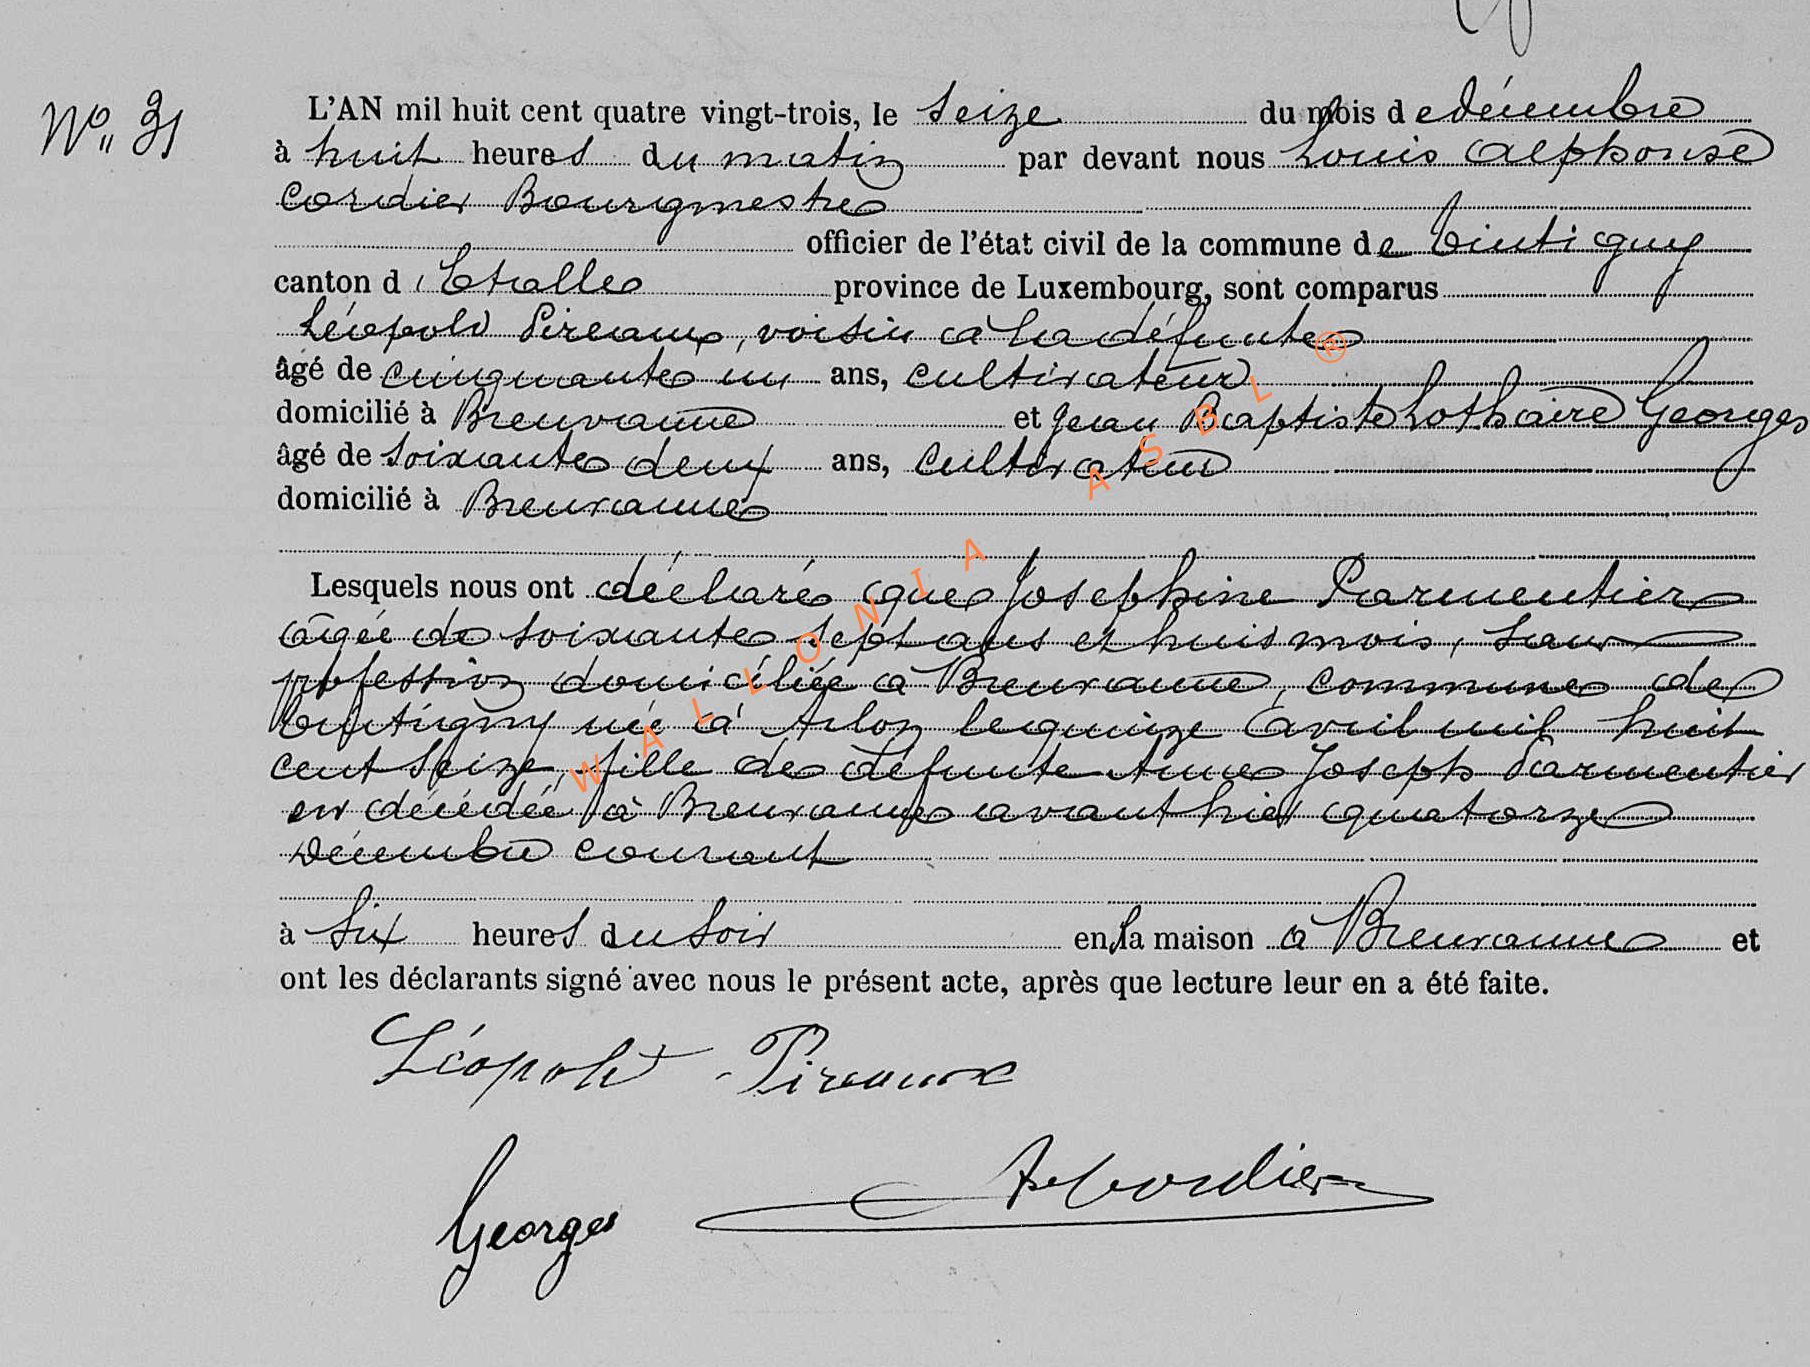 N° 31
L'AN mil huit cent quatre vingt-trois, le seize du mois de décembre
à huit heures du matin par devant nous Louis Alphonse
Cordier Bourgmestre
officier de l'état civil de la commune de Tintigny
canton d'Etalle province de Luxembourg, sont comparus
Léopold Pireaux, voisin à la défunte
âgé de cinquante un ans, cultivateur
domicilié à Breuvanne et Jean Baptiste Lothaire Georges
âgé de soixante deux ans, cultivateur
domicilié à Breuvanne
Lesquels nous ont déclaré que Josephine Parmentier
âgée de soixante sept ans et huit mois, sans
profession domiciliée à Breuvanne, commune de
Tintigny née à Arlon le quinze avril mil huit
cent seize, fille de défunte Anne Joseph Parmentier
est décédée à Breuvanne avant hier quatorze
décembre courant
à six heures du soir en sa maison à Breuvanne et
ont les déclarants signé avec nous le présent acte, après que lecture leur en a été faite.
Léopold Pireaux
Georges Cordier
WALLONIA ASBL ®